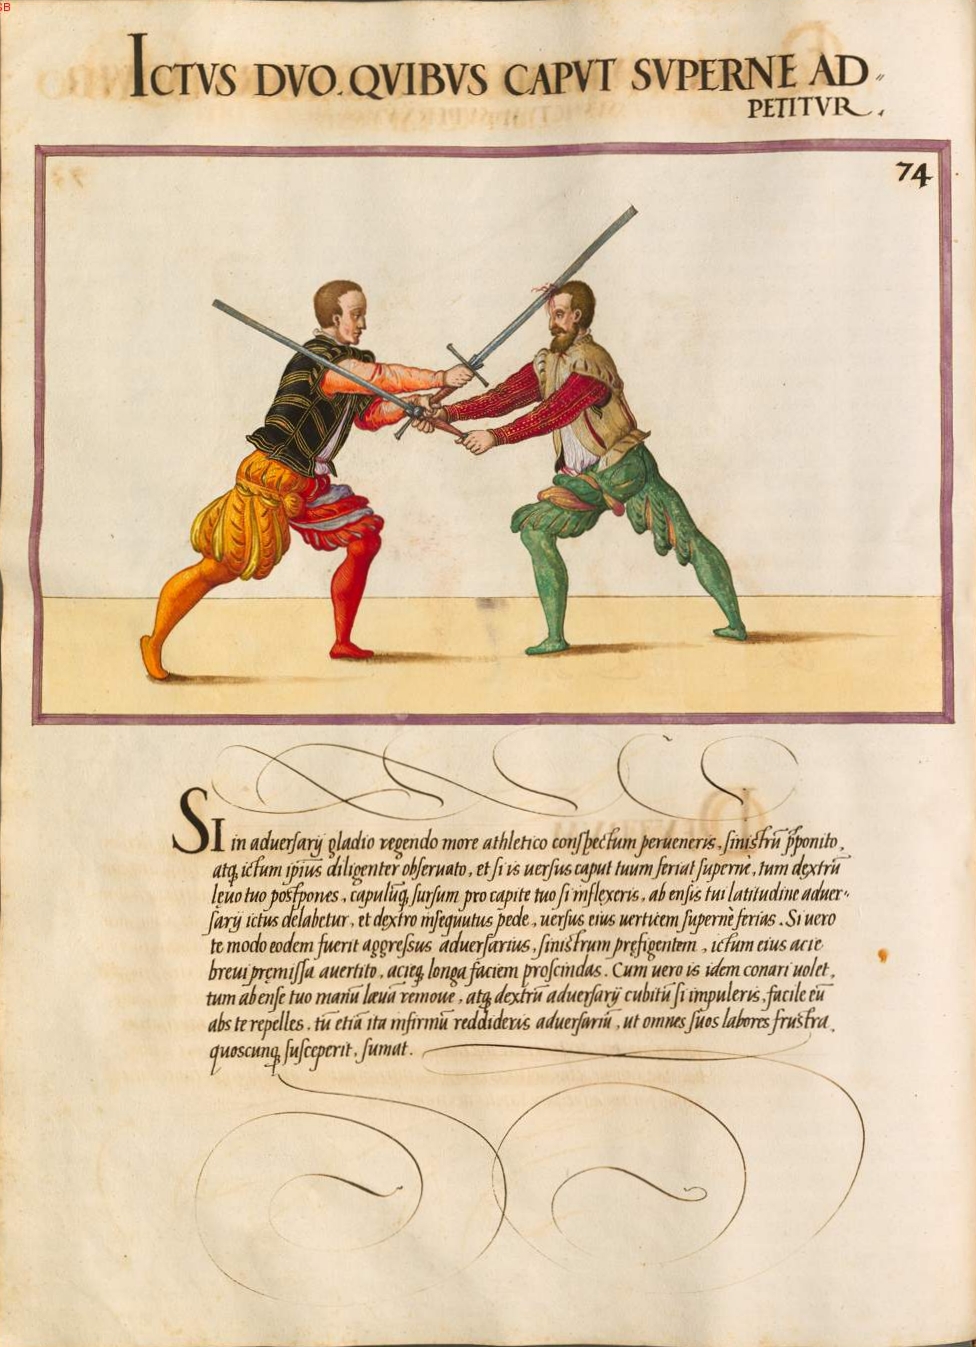 ICTVS DVO. QVIBVS CAPVT SVPERNE AD,,
PETITVR.
74
SI in aduersarÿ gladio regendo more athletico conspectum perueneris, sinistrū p̄ponito,
atq, ictum ipīus diligenter obseruato, et si is uersus caput tuum feriat supernè, tum dextrū
lęuo tuo postpones, capulūq, sursum pro capite tuo si inflexeris, ab ensis tui latitudine aduer,,
sarÿ ictus delabetur, et dextro insequutus pede, uersus eius uerticem supernè ferias. Si uero
te modo eodem fuerit aggressus aduersarius, sinistrum pręfigentem, ictum eius acie
breui pręmissa auertito, acieq, longa faciem proscindas. Cum uero is idem conari uolet,
tum ab ense tuo manū læuā remoue, atq, dextrū aduersarÿ cubitū si impuleris, facile eū
abs te repelles, tū etiā ita infirmū reddideris aduersariū, ut omnes suos labores frustra,
quoscunq, susceperit, sumat.